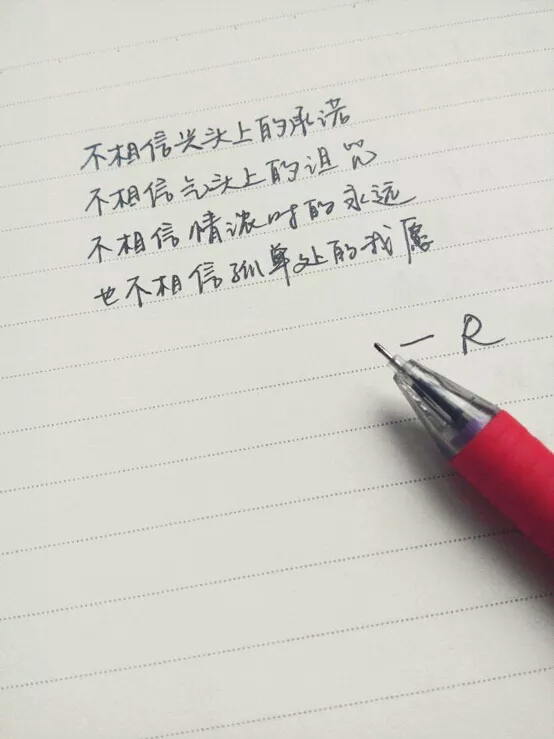 不相信兴头上的承诺
不相信气头上的诅咒
不相信情浓时的永远
也不相信孤单处的我愿
— R